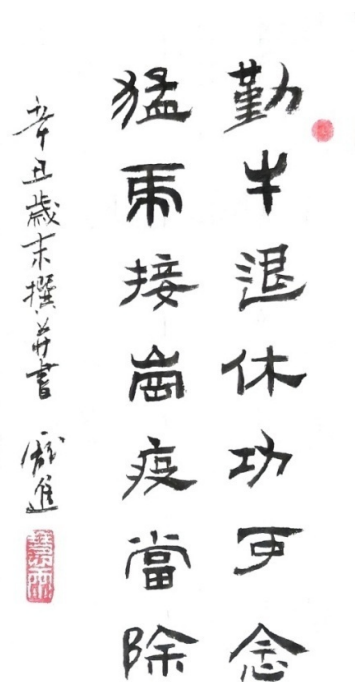 勤牛退休功可念
猛虎接崗疫當除
辛丑歲末撰并書 進